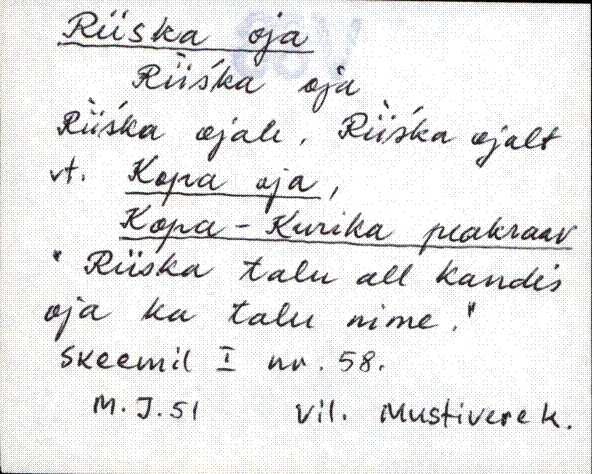 Riiska oja
Rìiśka oja
Rìiśka ojale, Rìiśka ojalt
vt. Kopa oja,
Kopa-Kurika peakraav
"Riiska talu all kandis
oja ka talu nime."
Skeemil I nr. 58.
M.J.51 Vil. Mustivere k.